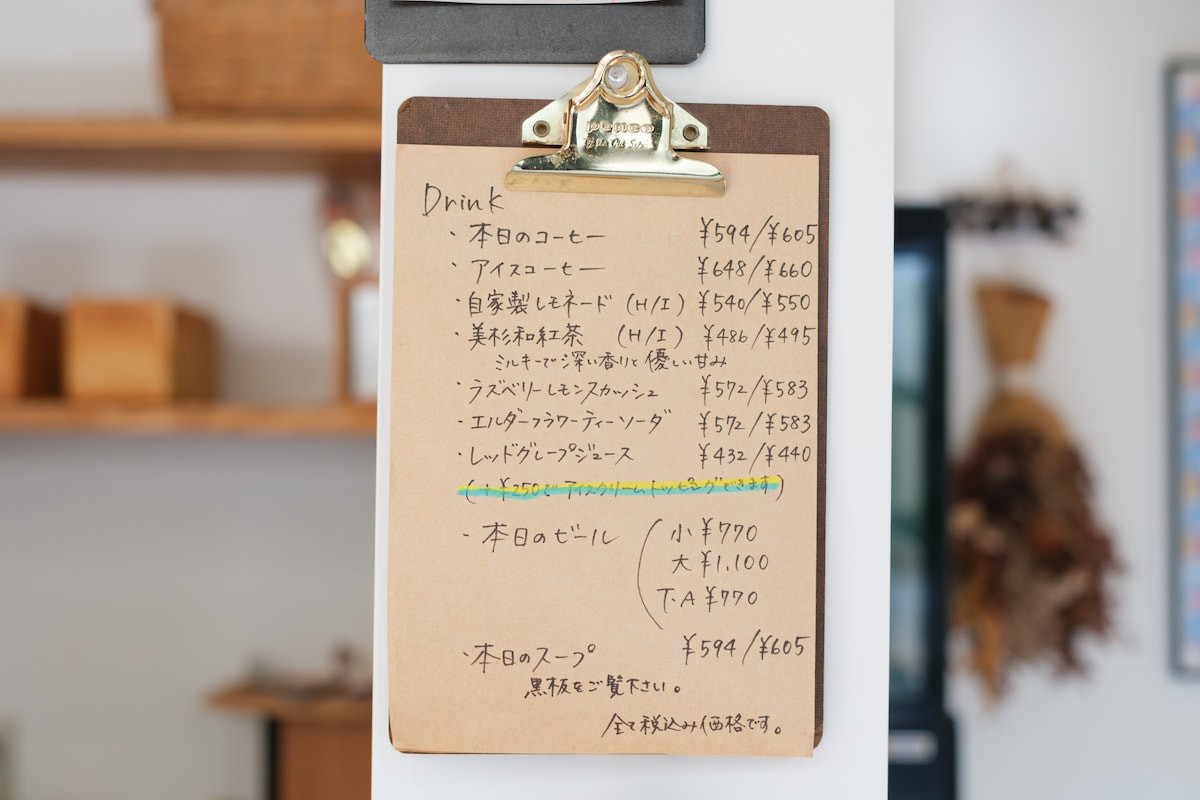 penco
Drink
・本日のコーヒー ¥594/¥605
・アイスコーヒー ¥648/¥660
・自家製レモネード (H/I) ¥540/¥550
・美杉和紅茶 (H/I) ¥486/¥495
ミルキーで深い香りと優しい甘み
・ラズベリーレモンスカッシュ ¥572/¥583
・エルダーフラワーティーソーダ ¥572/¥583
・レッドグレープジュース ¥432/¥440
(+¥250でアイスクリームトッピングできます)
・本日のビール 小 ¥770
大 ¥1,100
T.A ¥770
・本日のスープ ¥594/¥605
黒板をご覧下さい。
全て税込み価格です。